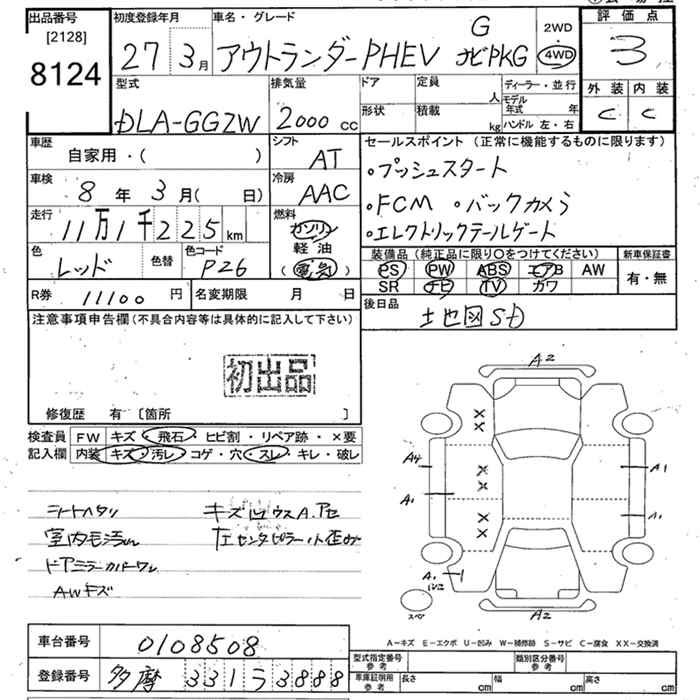 出品番号 初度登録年月 車名・グレード 評価点
[2128] 27 3月 アウトランダーPHEV G ナビPKG 2WD 4WD 3
8124
型式 排気量 ドア 定員 人 ディーラー・並行 外装 内装
DLA-GG2W 2000cc 形状 積載 kg モデル年式 年 C C
ハンドル 左・右
車歴 シフト セールスポイント(正常に機能するものに限ります)
自家用・( ) AT ・プッシュスタート
車検 冷房 ・FCM ・バックカメラ
8年3月( 日) AAC ・エレクトリックテールゲート
走行 燃料
11万1千225km ガソリン
軽油
(電気)
色 色替 色コード 装備品(純正品に限り○をつけてください) 新車保証書
レッド P26 PS PW ABS エアB AW 有・無
SR ナビ TV カワ
R券 11100円 名変期限 月 日 後日品
土地図SD
注意事項申告欄(不具合内容等は具体的に記入して下さい)
初出品
修復歴 有 [箇所 ]
検査員 FW キズ・飛石・ヒビ割・リペア跡・×要
記入欄 内装 キズ・汚レ・コゲ・穴・スレ・キレ・破レ
シートヘタリ キズ凹ウスA.アセ
室内毛汚れ センタピラー小歪み
ドアミラーカバーワレ
AWキズ
A2
A4 A1
A1 A1
A1
スペア A2
A-キズ E-エクボ U-凹み W-補修跡 S-サビ C-腐食 XX-交換済
車台番号 0108508
登録番号 多摩 331 ラ 3888
型式指定番号 参考 類別区分番号 参考
車庫証明用 参考 長さ cm 幅 cm 高さ cm